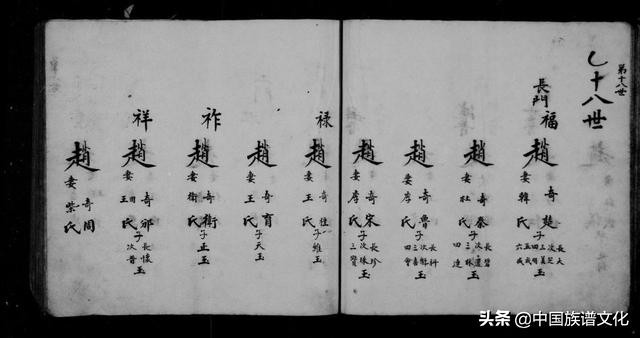 第十八世
乚十八世
長門 福
趙奇楚 妻韓氏 子 長大 次芝 三義 四明 五成 六成 玉
趙奇秦 妻杜氏 子 次 三珠 四連 玉
趙奇魯 妻李氏 子 三喜 四會 玉
趙奇宋 妻李氏 子 長珍 次珠 三賢 玉
禄
趙奇 妻王氏 子維玉
趙奇育 妻王氏 子天玉
祚
趙奇衛 妻衛氏 子正玉
祥
趙奇邠 妻田王氏 子 長懷 次普 玉
趙奇周 妻柴氏
头条 @中国族谱文化